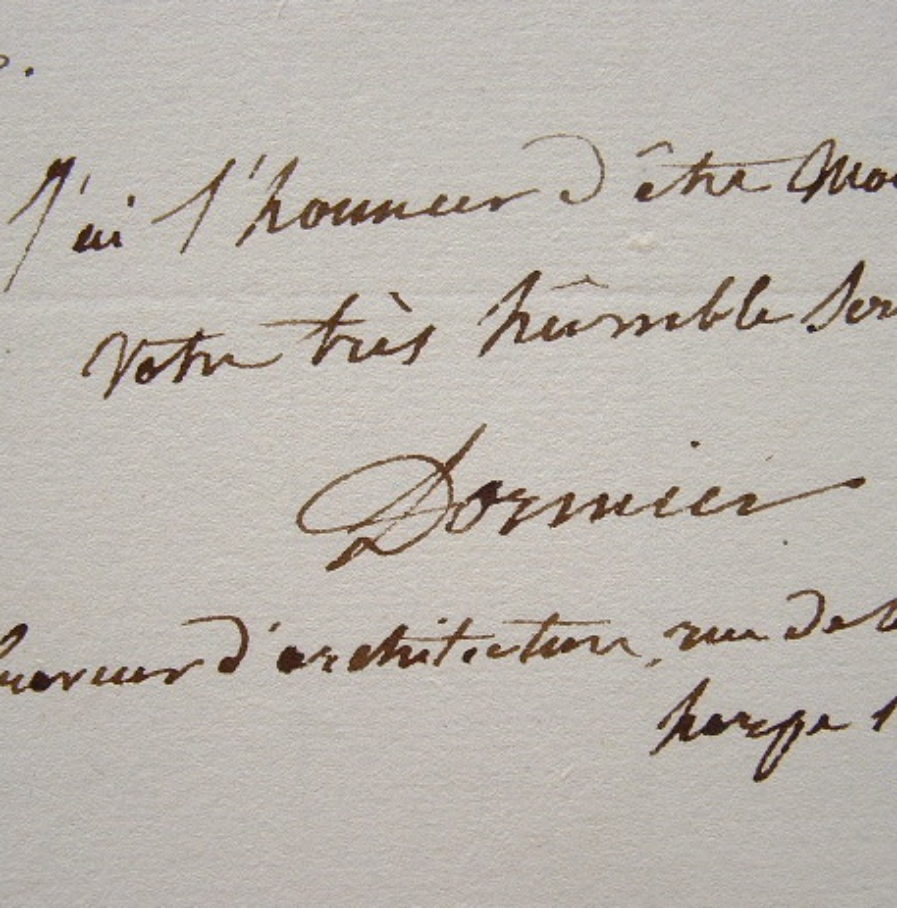 J'ai l'honneur d'être Mo
Votre très hûmble Ser
Dormier
graveur d'architecture, rue de la
harpe 1